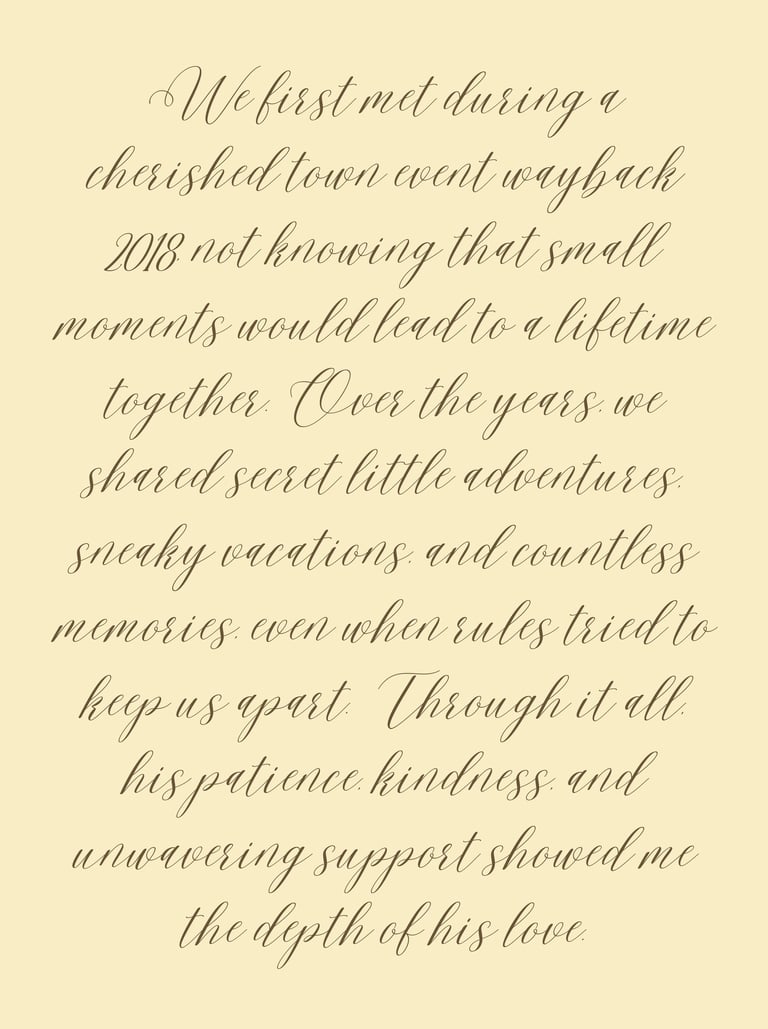 We first met during a
cherished town event wayback
2018, not knowing that small
moments would lead to a lifetime
together. Over the years, we
shared secret little adventures,
sneaky vacations, and countless
memories, even when rules tried to
keep us apart. Through it all,
his patience, kindness, and
unwavering support showed me
the depth of his love.